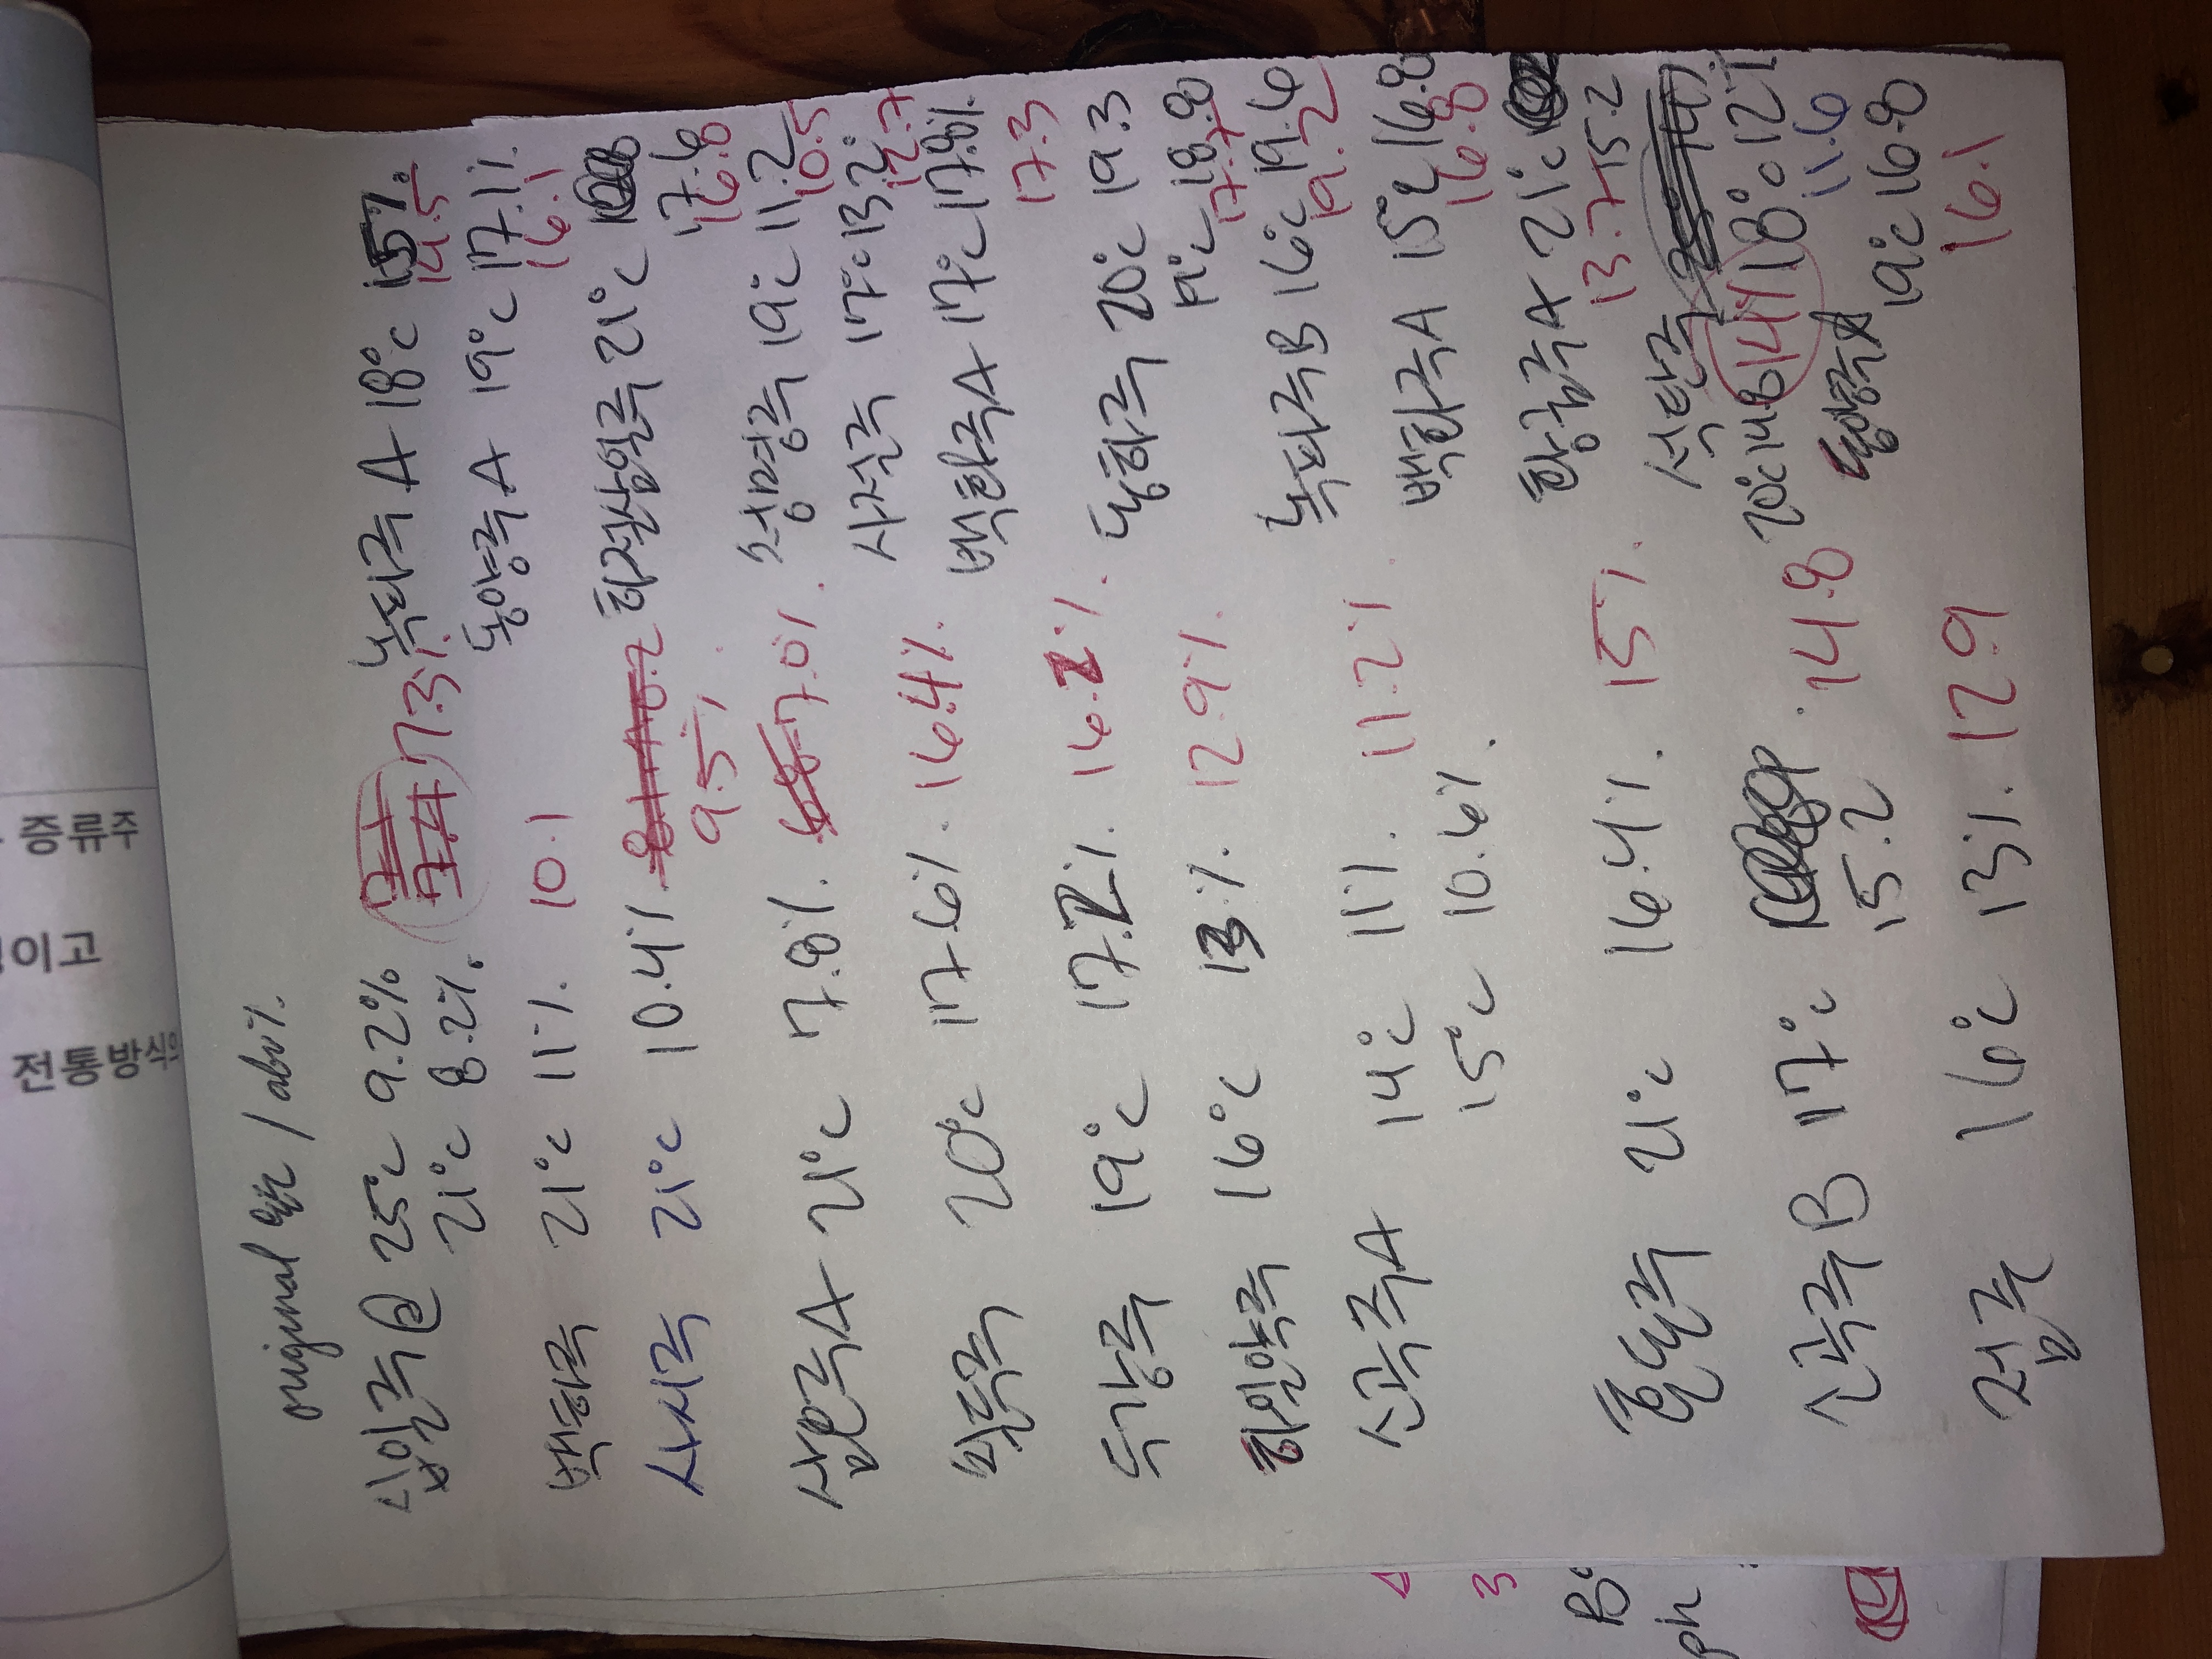 original 알콜 / abv%
십일주@ 25°c 9.2%
21°c 8.2%. 7.3%
백하주 21°c 11% 10.1
사시주 21°c 10.4%
9.5%
삼오주A 21°c 7.8% 7.0%
20°c 17.6% 16.4%
두강주 19°c 17.2% 16.2%
하일약주 16°c 13% 12.9%
신곡주A 14°c 11% 11.2%
15°c 10.6%
21°c 16.4% 15%
신곡주B 17°c 14.8
15.2
점주 16°c 13% 12.9
녹파주 A 18°c 15%
14.5
동양주A 19°c 17.1%
16.1
하절삼일주 21°c
17.6
16.8
청명주 19°c 11.2
10.5
사절주 17°c 13.2
12.7
백화주A 17°c 17.8%
17.3
동하주 20°c 19.3
19°c 18.8
17.7
녹파주B 16°c 19.6
19.2
백화주A 15°c 16.8
16.8
황금주A 21°c
13.7 15.2
석탄주
20°c 14.8 14.4 18°c 12.1
11.6
동양주A
19°c 16.8
16.1
증류주
이고
전통방식의
4
3
B:
ph